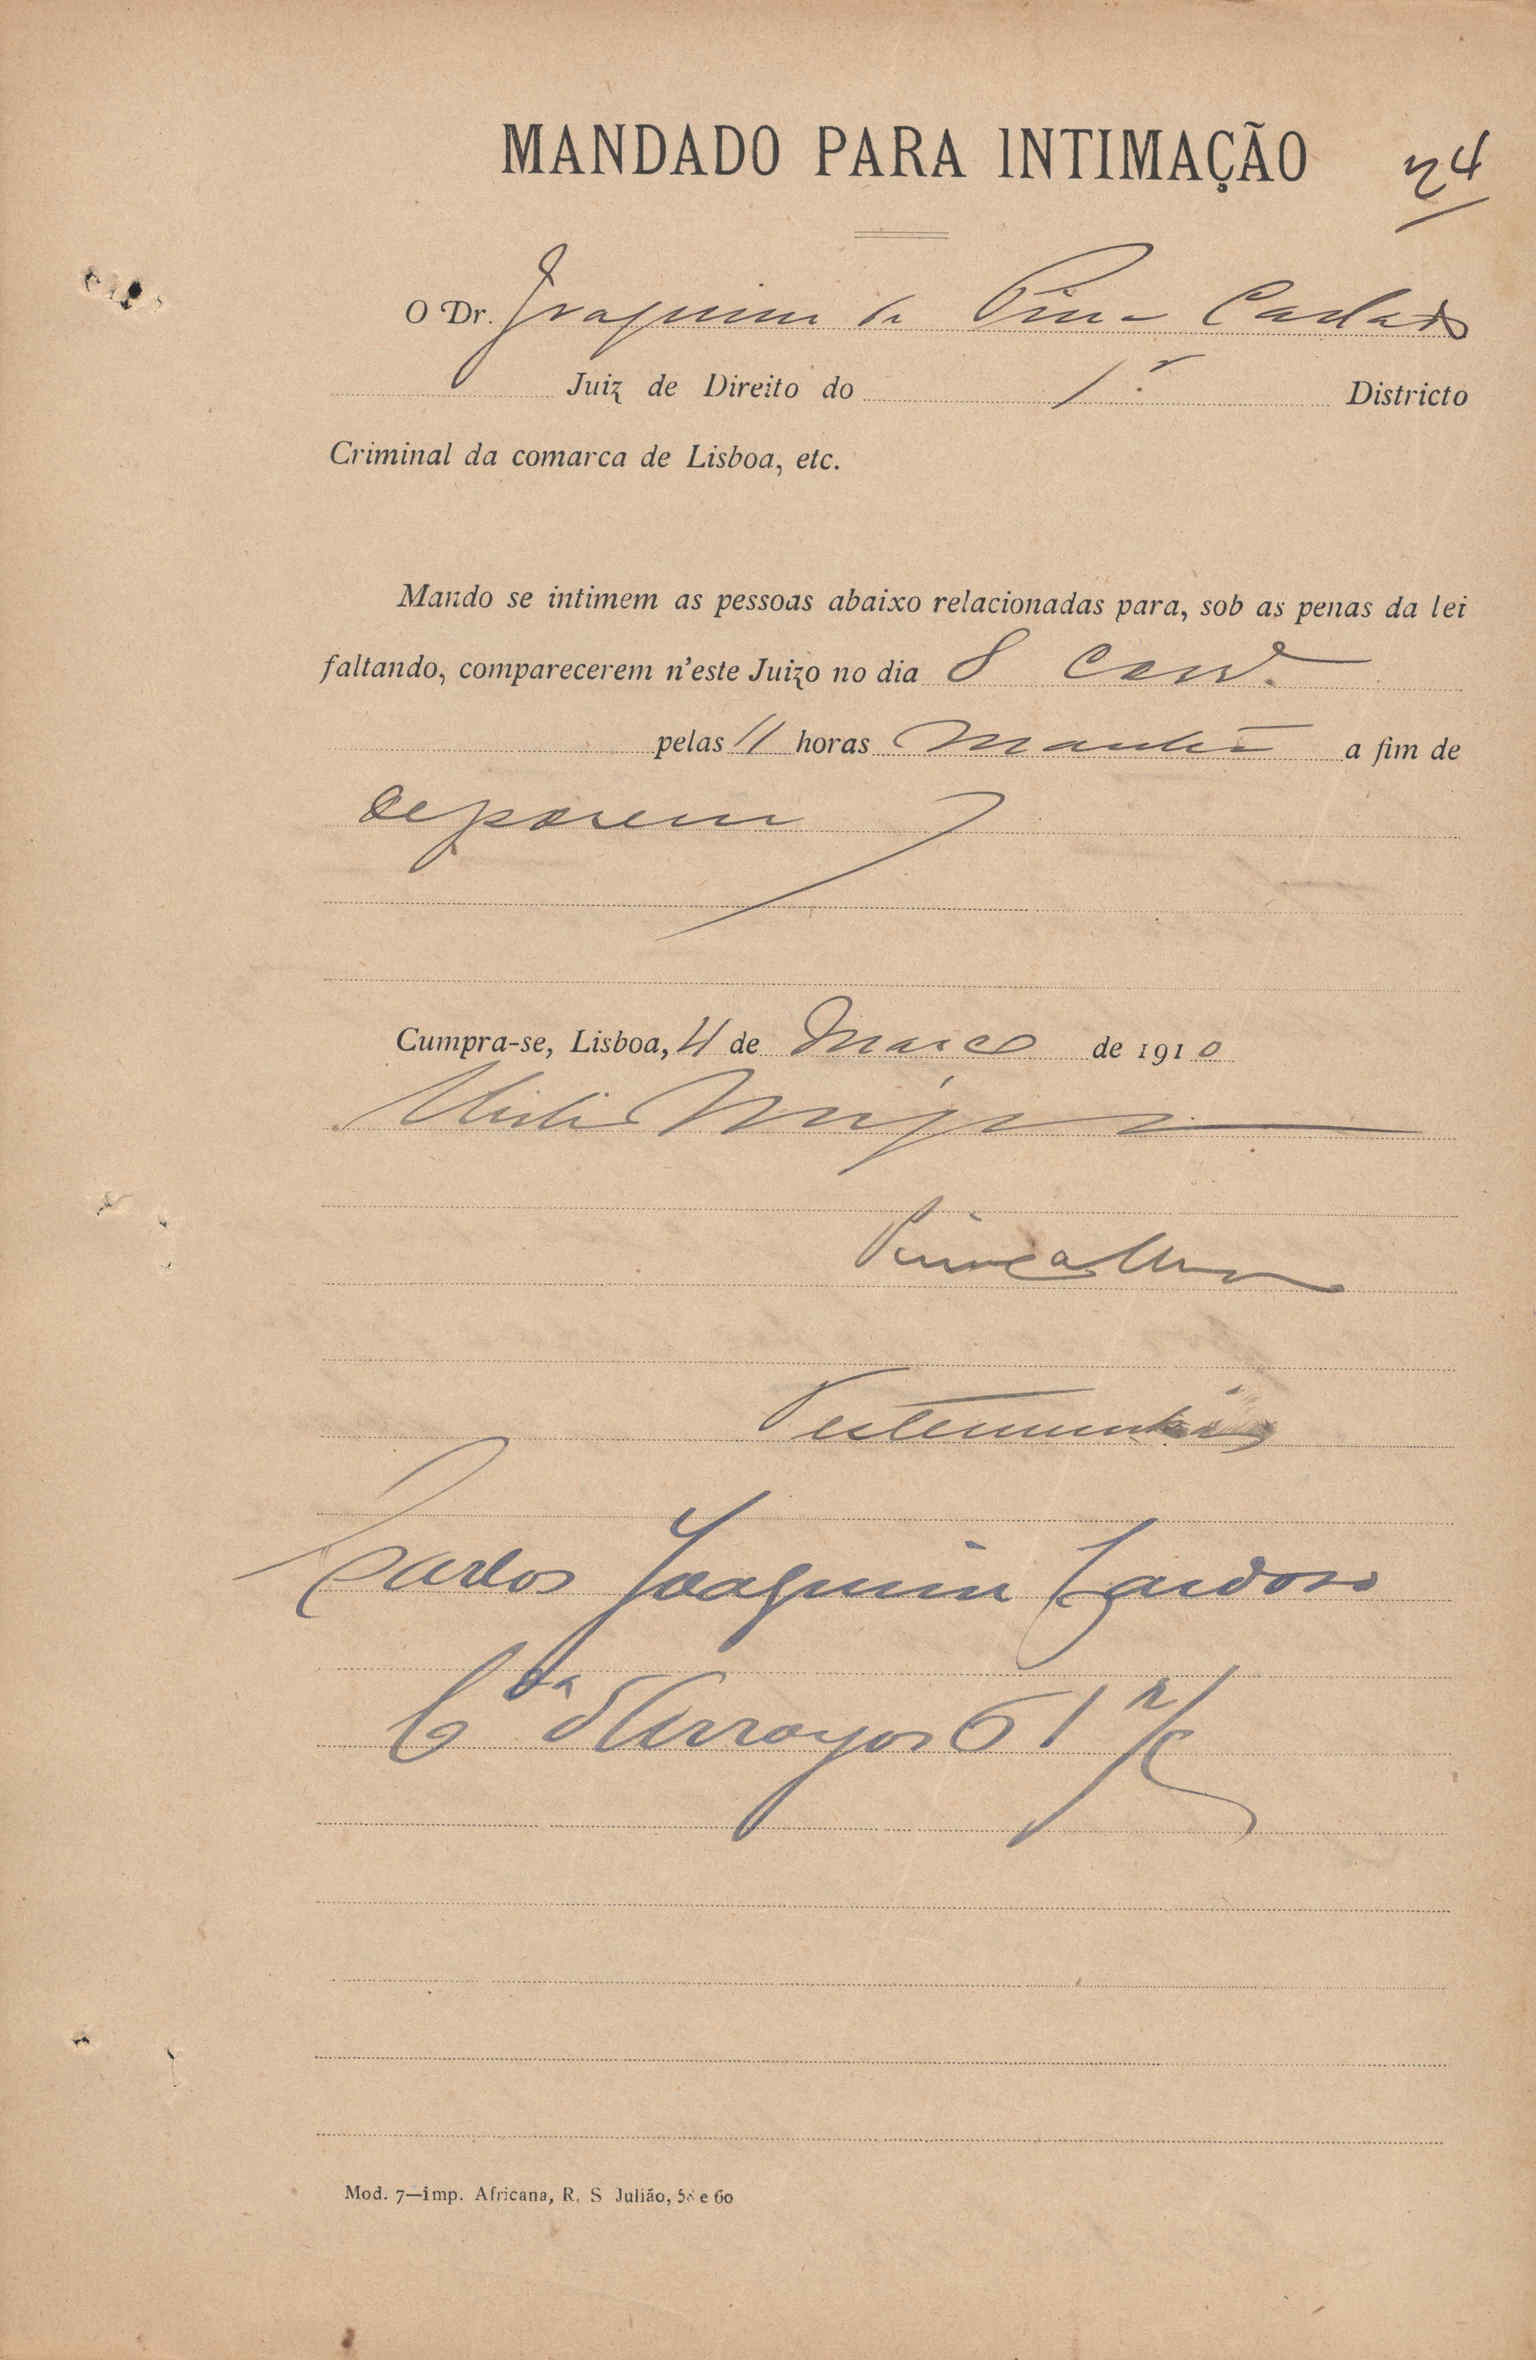 MANDADO PARA INTIMAÇÃO
24
O Dr. Joaquim de Pina Callado
Juiz de Direito do 1.º Districto
Criminal da comarca de Lisboa, etc.
Mando se intimem as pessoas abaixo relacionadas para, sob as penas da lei
faltando, comparecerem n'este Juizo no dia 8 corr.
pelas 11 horas manhã a fim de
deporem
Cumpra-se, Lisboa, 4 de Março de 1910
Pina Callado
Testemunha
Carlos Joaquim Cardoso
Cda d'Arroyos 61 r/c
Mod. 7—imp. Africana, R. S Julião, 58 e 60